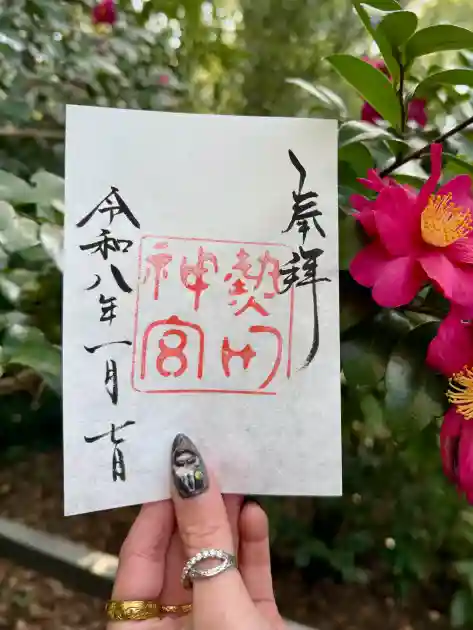 奉拝
熱田
神宮
令和八年一月七日